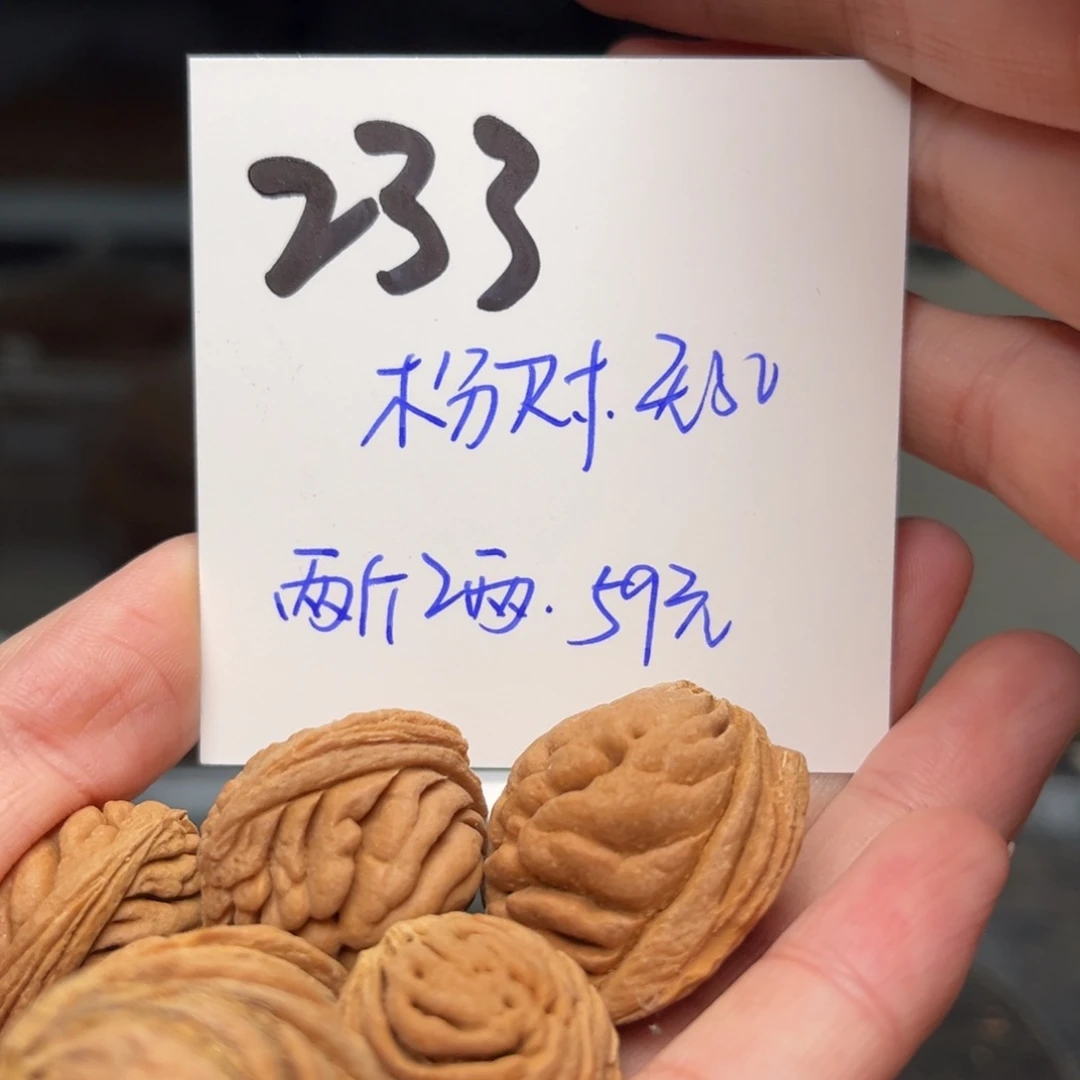 233
粉对.
两斤2两.59元